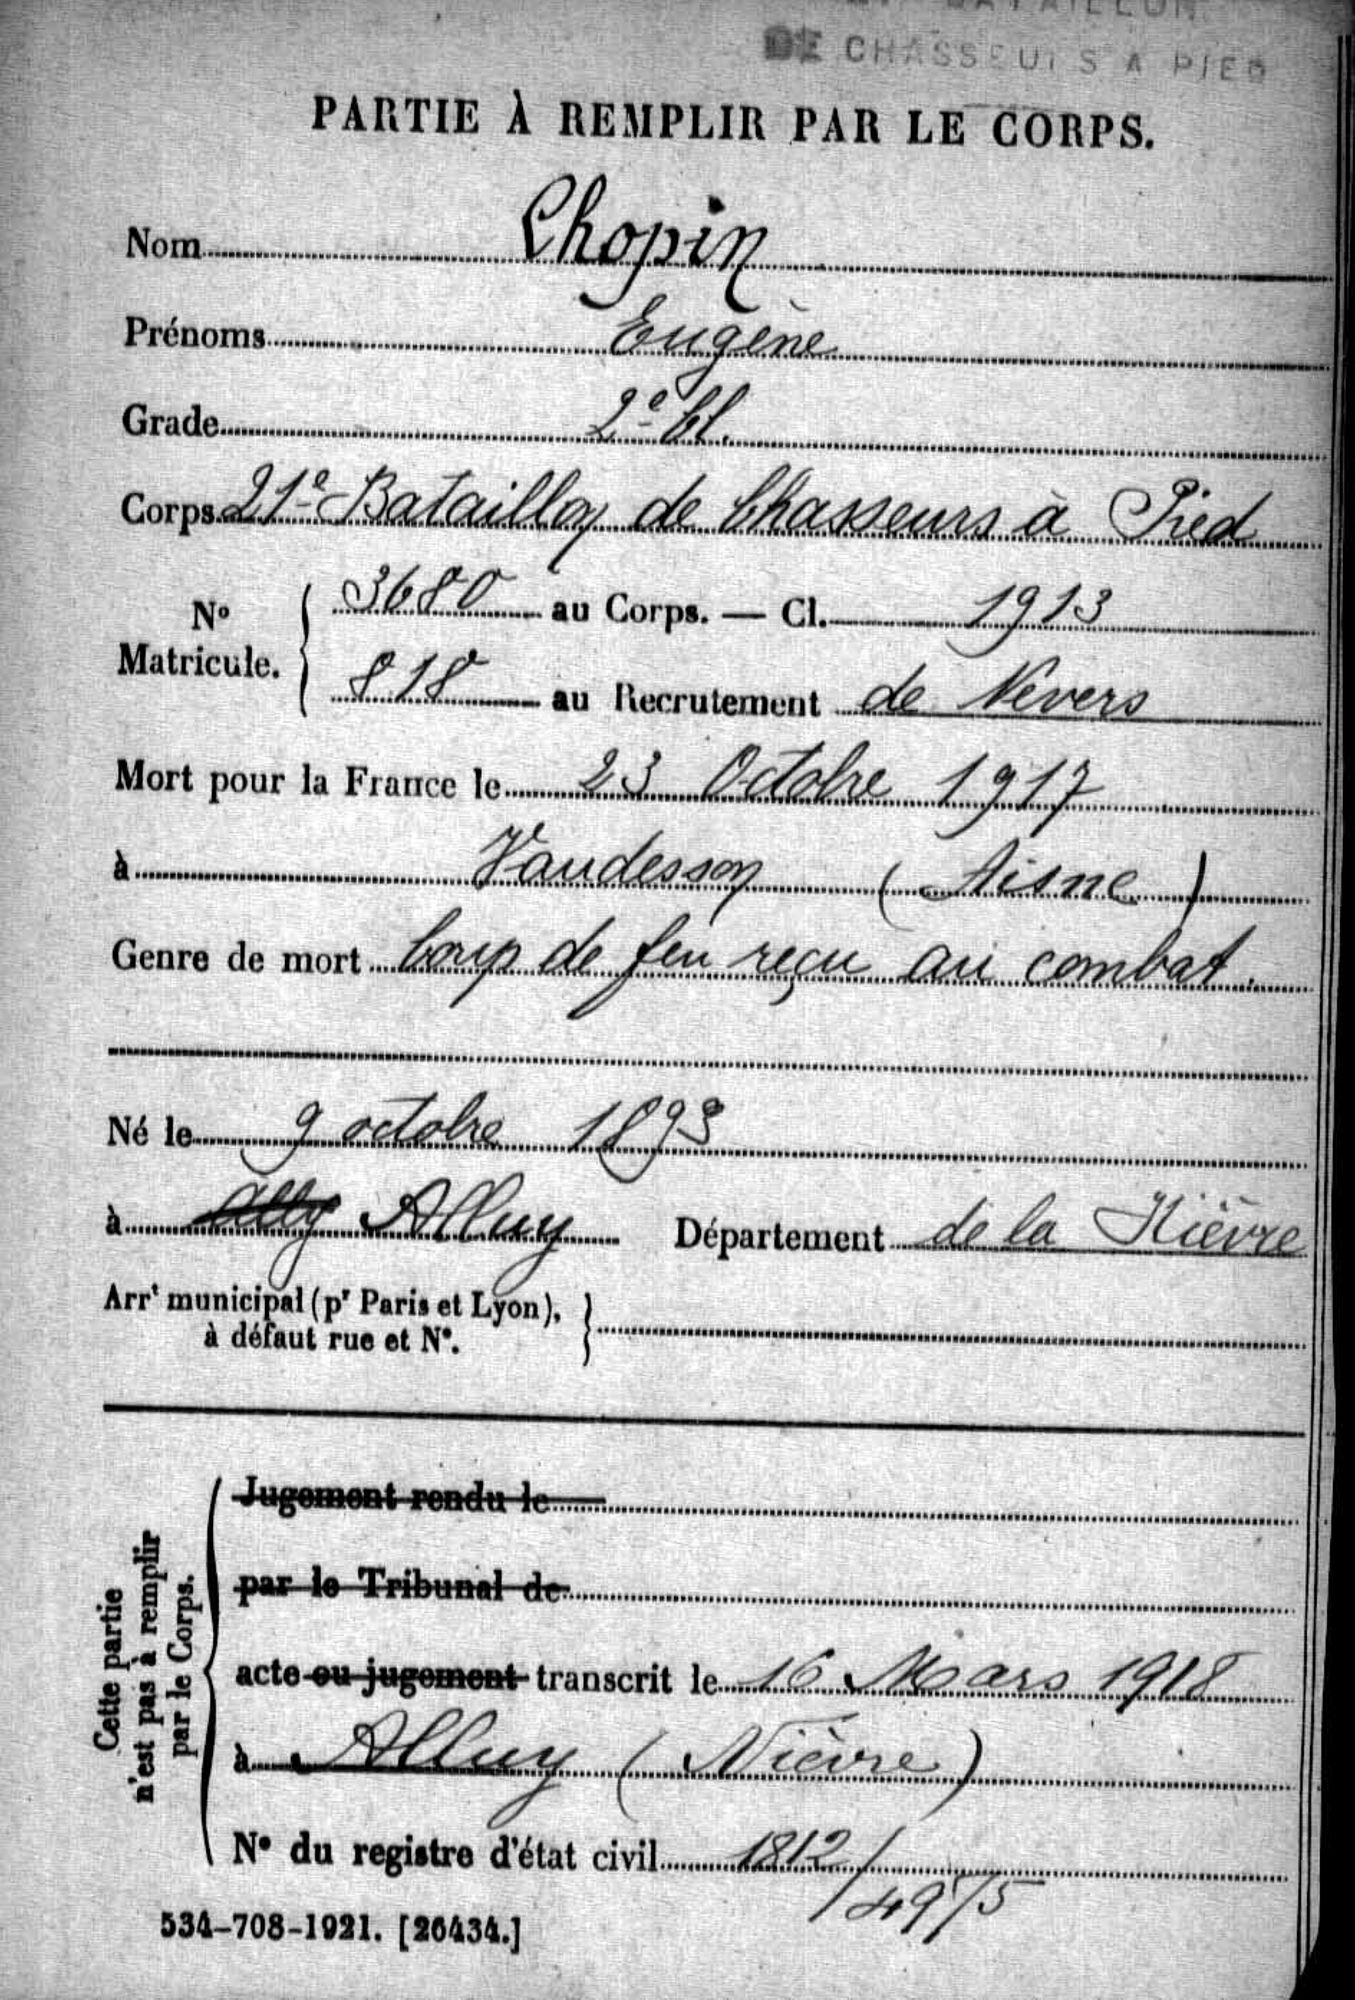 BATAILLON
DE CHASSEURS A PIED
PARTIE À REMPLIR PAR LE CORPS.
Nom Chopin
Prénoms Eugène
Grade 2e Cl.
Corps 21e Bataillon de Chasseurs à Pied
No Matricule. 3680 au Corps. — Cl. 1913
818 au Recrutement de Nevers
Mort pour la France le 23 Octobre 1917
à Vaudesson (Aisne)
Genre de mort Coup de feu reçu au combat.
Né le 9 octobre 1893
à Ally Alluy Département de la Nièvre
Arrt municipal (pr Paris et Lyon),
à défaut rue et No.
Cette partie
n'est pas à remplir
par le Corps.
Jugement rendu le
par le Tribunal de
acte ou jugement transcrit le 16 Mars 1918
à Alluy (Nièvre)
No du registre d'état civil 1812/
4975
534-708-1921. [26434.]